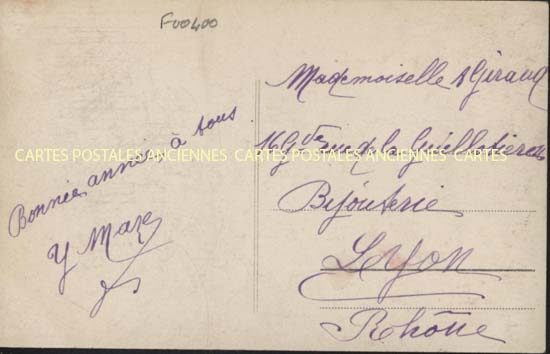 Fv0400
Bonnée année à tous
Y Mare
Mademoiselle A Giraud
16 Gde rue de la Guillotière
Bijouterie
Lyon
Rhône
CARTES POSTALES ANCIENNES CARTES POSTALES ANCIENNES CARTES